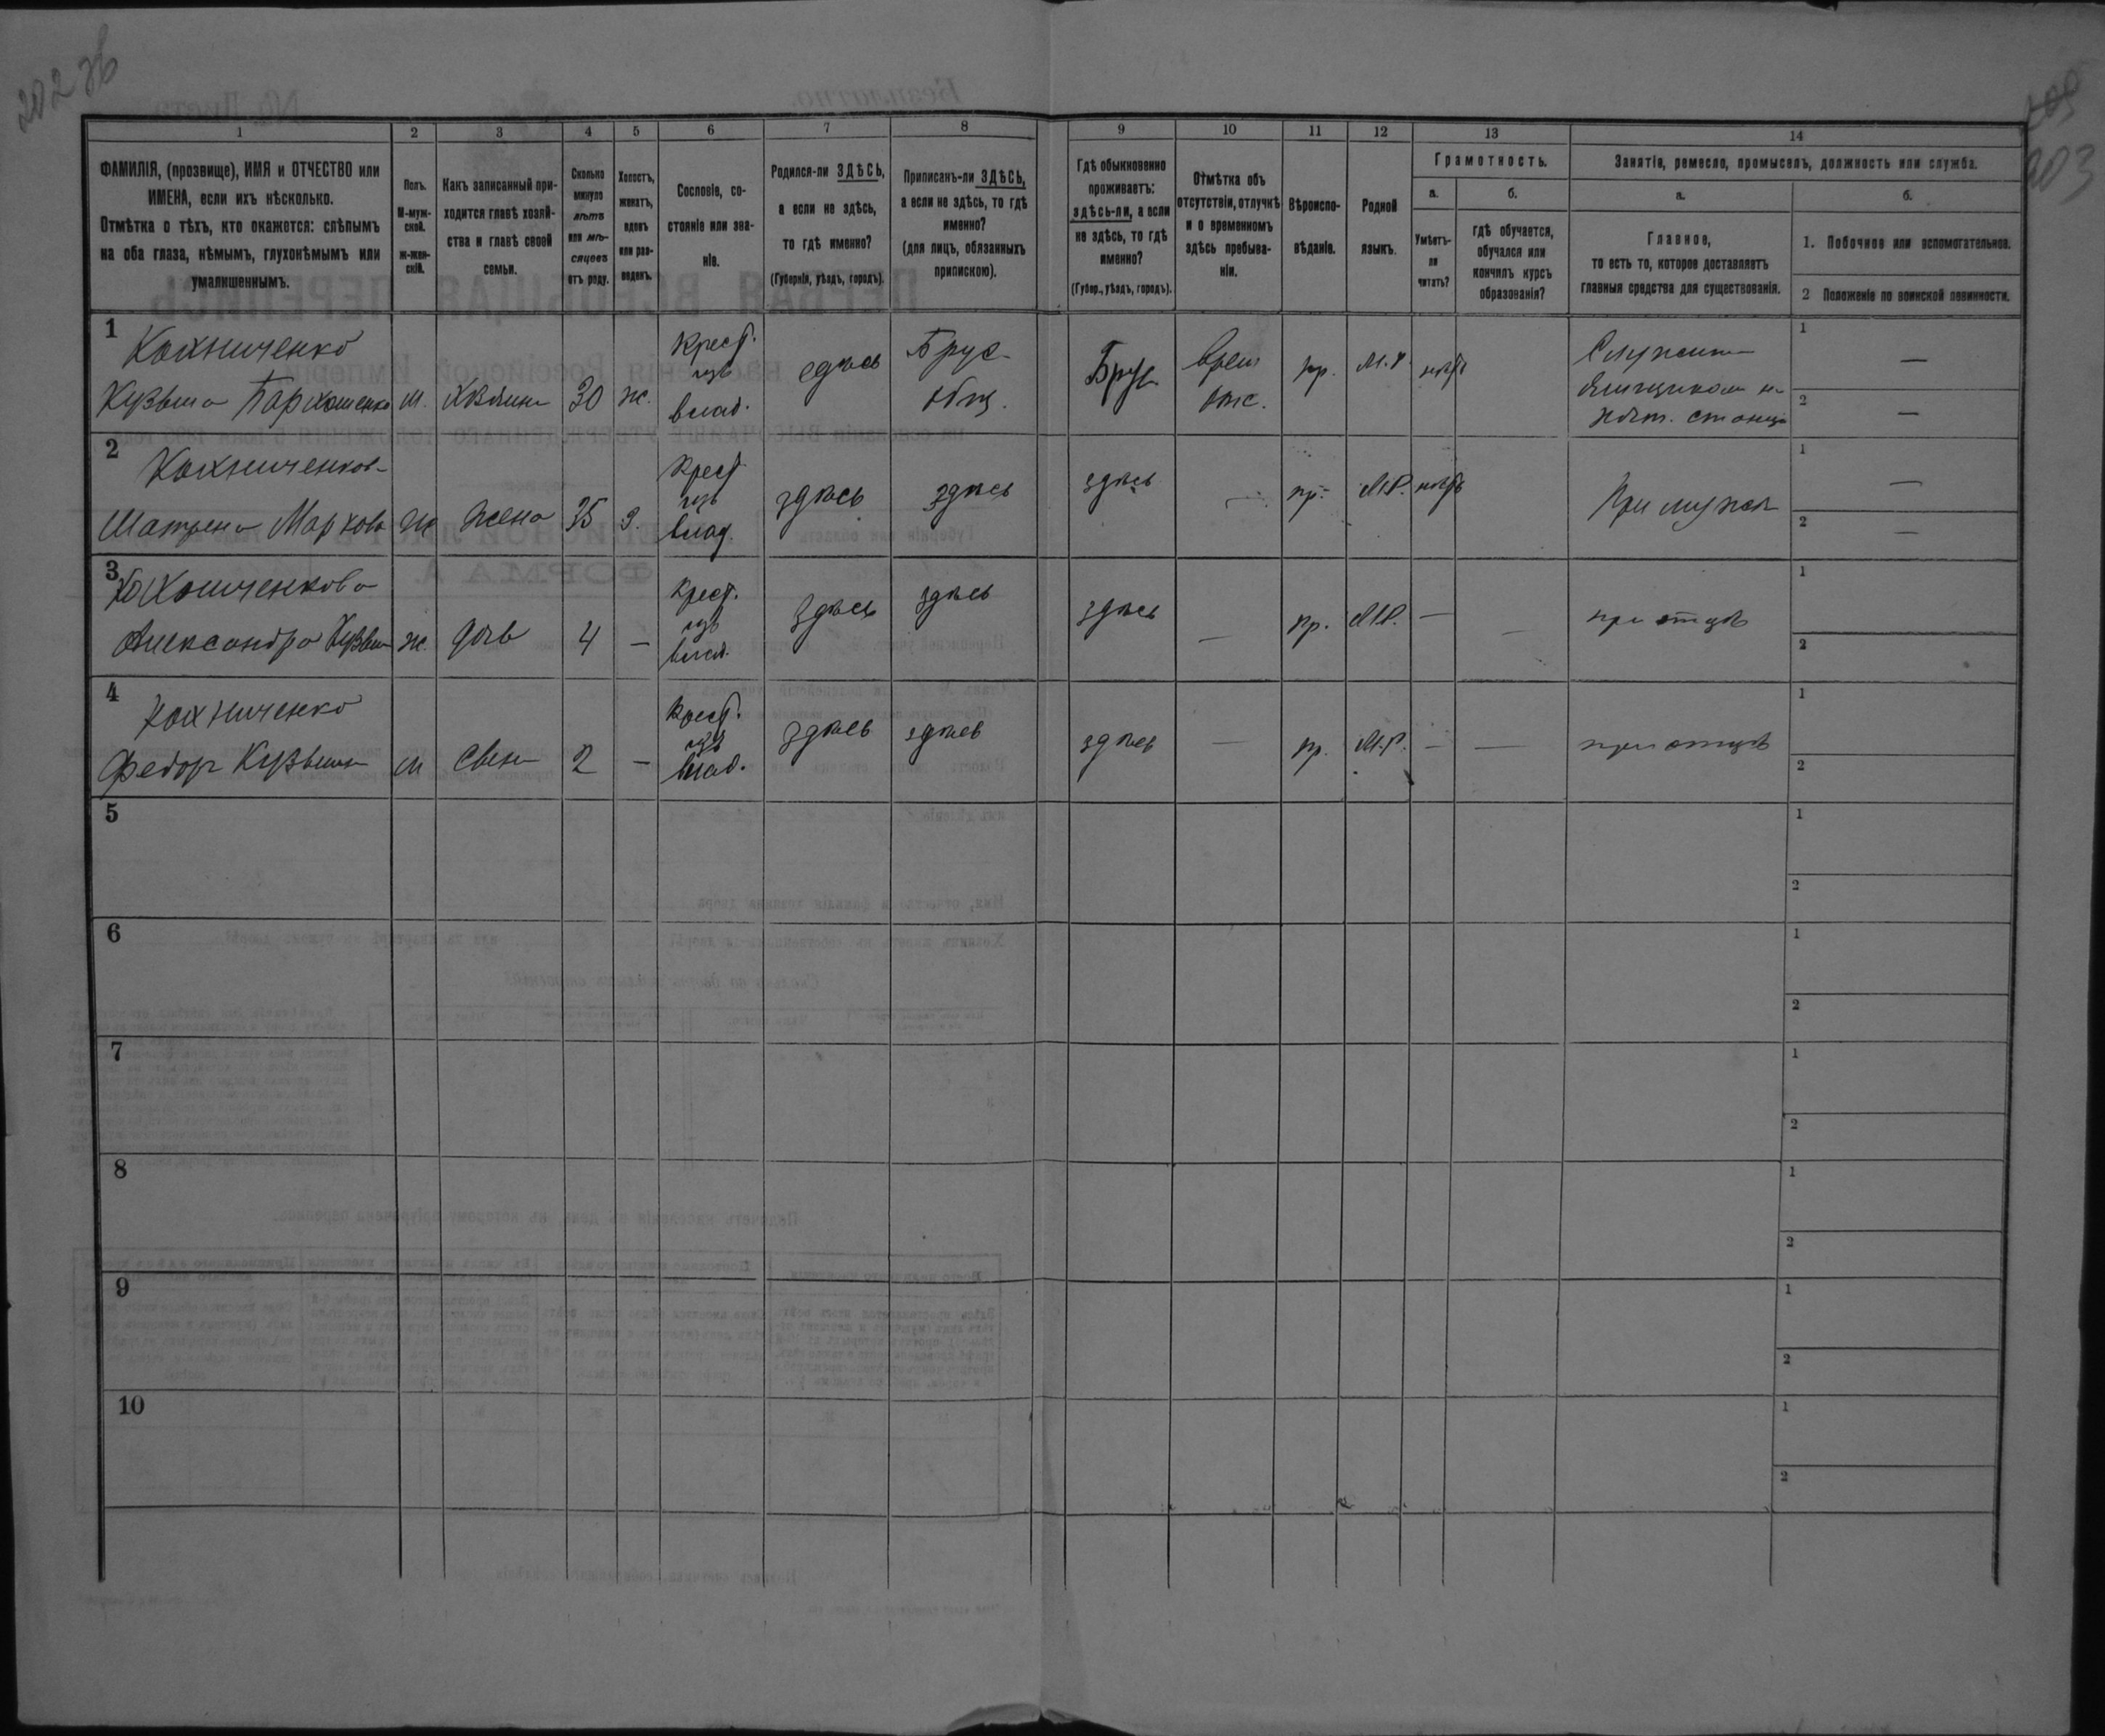 202 зв
203
1 2 3 4 5 6 7 8 9 10 11 12 13 14
ФАМИЛІЯ, (прозвище), ИМЯ и ОТЧЕСТВО или
ИМЕНА, если ихъ нѣсколько.
Отмѣтка о тѣхъ, кто окажется: слѣпымъ
на оба глаза, нѣмымъ, глухонѣмымъ или
умалишеннымъ.
Полъ.
М-муж-
ской.
ж-жен-
скій.
Какъ записанный при-
ходится главѣ хозяй-
ства и главѣ своей
семьи.
Сколько
минуло
лѣтъ
или мѣ-
сяцевъ
отъ роду.
Холостъ,
женатъ,
вдовъ
или раз-
веденъ.
Сословіе, со-
стояніе или зва-
ніе.
Родился-ли ЗДѢСЬ,
а если не здѣсь,
то гдѣ именно?
(Губернія, уѣздъ, городъ).
Приписанъ-ли ЗДѢСЬ,
а если не здѣсь, то гдѣ
именно?
(для лицъ, обязанныхъ
припискою).
Гдѣ обыкновенно
проживаетъ:
здѣсь-ли, а если
не здѣсь, то гдѣ
именно?
(Губер., уѣздъ, городъ).
Отмѣтка объ
отсутствіи, отлучкѣ
и о временномъ
здѣсь пребыва-
ніи.
Вѣроиспо-
вѣданіе.
Родной
языкъ.
Грамотность.
а.
Умѣетъ-
ли
читать?
б.
гдѣ обучается,
обучался или
кончилъ курсъ
образованія?
Занятіе, ремесло, промыселъ, должность или служба.
а.
Главное,
то есть то, которое доставляетъ
главныя средства для существованія.
б.
1. Побочное или вспомогательное.
2 Положеніе по воинской повинности.
1
Кохниченко
Кузьма м. 30 ж.
Крест.
изъ
влад.
здѣсь
Брус.
общ.
Брус.
Врем.
отс.
пр. М.Р. нѣтъ
1 —
2 —
2
Матрена Маркова ж жена 35 з.
Крест
изъ
влад.
здѣсь здѣсь здѣсь — пр. М.Р. нѣтъ
При мужѣ
1 —
2 —
3
Александра ж. дочь 4 —
Крест.
изъ
влад.
здѣсь здѣсь здѣсь — пр. М.Р. — —
при отцѣ
1
2
4
Кохниченко
Федоръ м сынъ 2 —
Крест.
изъ
влад.
здѣсь здѣсь здѣсь — пр. М.Р. — —
при отцѣ
1
2
5
1
2
6
1
2
7
1
2
8
1
2
9
1
2
10
1
2